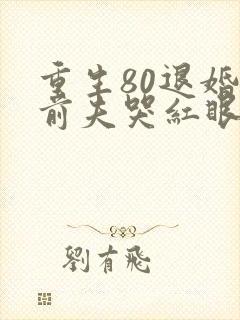 重生80退婚
前夫哭紅眼
劉有飛